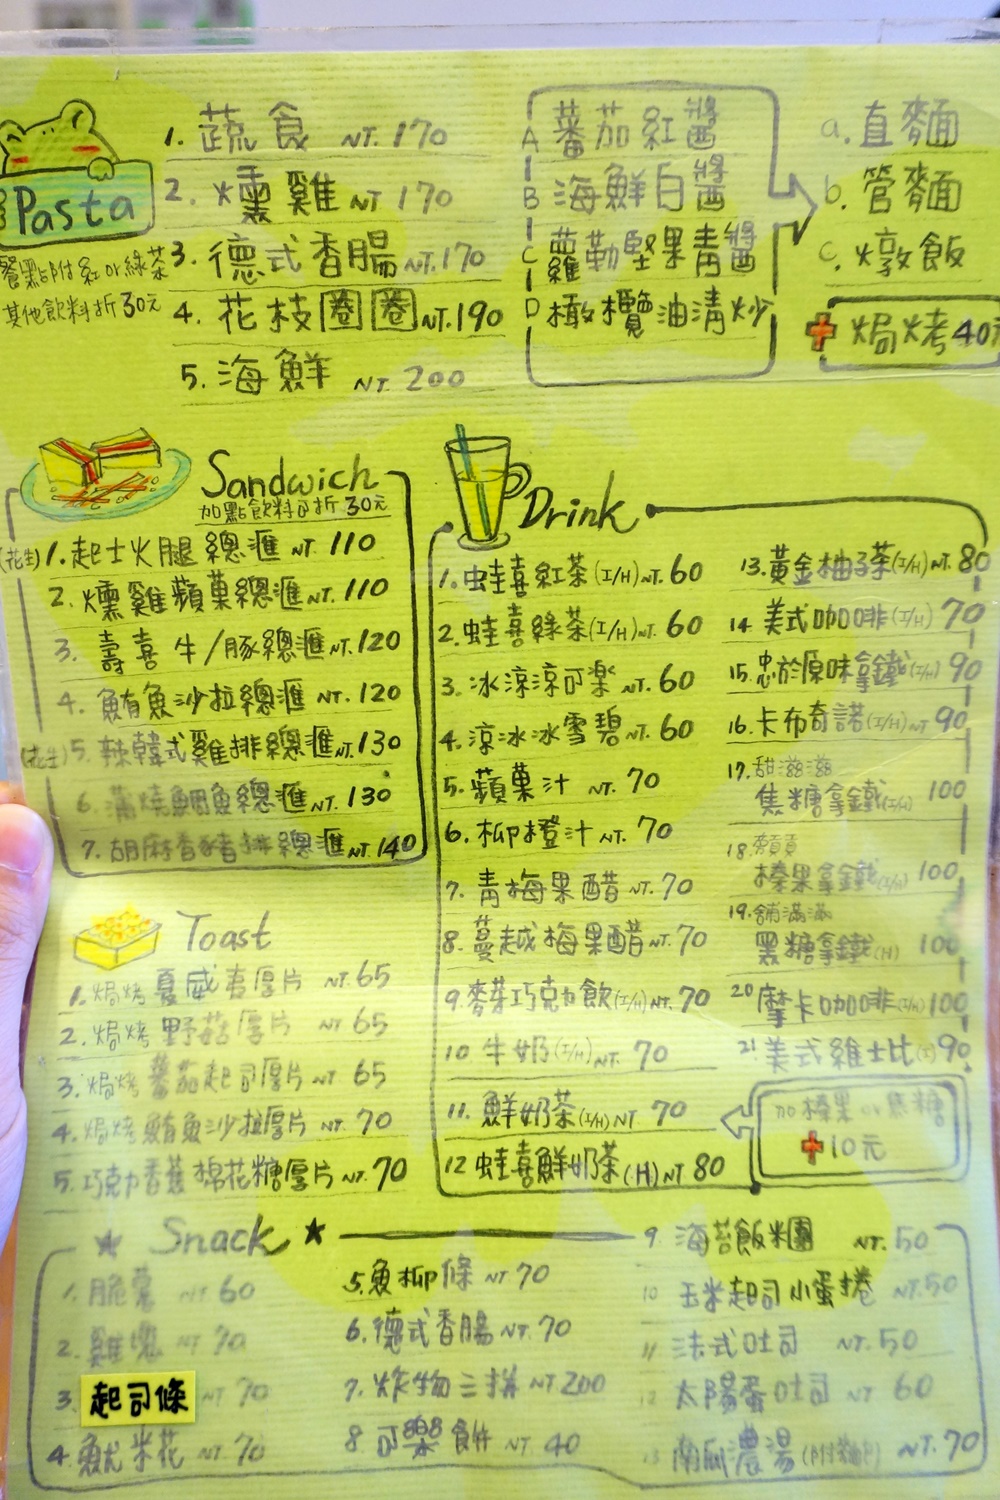 Pasta
餐點附紅or綠茶
其他飲料折30元
1. 蔬食 NT. 170
2. 燻雞 NT 170
3. 德式香腸 NT. 170
4. 花枝圈圈 NT. 190
5. 海鮮 NT. 200
A 蕃茄紅醬
B 海鮮白醬
C 蘿勒堅果青醬
D 橄欖油清炒
a. 直麵
b. 管麵
c. 燉飯
+ 焗烤40元
Sandwich
加點飲料可折30元
(花生) 1. 起士火腿總滙 NT. 110
2. 燻雞蘋菓總滙 NT. 110
3. 壽喜牛/豚總滙 NT. 120
4. 鮪魚沙拉總滙 NT. 120
(花生) 5. 辣韓式雞排總滙 NT. 130
6. 蒲燒鯛魚總滙 NT. 130
7. 胡麻香豬排總滙 NT. 140
Toast
1. 焗烤夏威夷厚片 NT. 65
2. 焗烤野菇厚片 NT 65
3. 焗烤蕃茄起司厚片 NT 65
4. 焗烤鮪魚沙拉厚片 NT. 70
5. 巧克力香蕉棉花糖厚片 NT. 70
Drink
1. 蛙喜紅茶(I/H) NT. 60
2. 蛙喜綠茶(I/H) NT. 60
3. 冰涼涼可樂 NT. 60
4. 涼冰冰雪碧 NT. 60
5. 蘋菓汁 NT. 70
6. 柳橙汁 NT. 70
7. 青梅果醋 NT. 70
8. 蔓越梅果醋 NT. 70
9. 麥芽巧克力飲(I/H) NT. 70
10. 牛奶(I/H) NT. 70
11. 鮮奶茶(I/H) NT 70
12 蛙喜鮮奶茶(H) NT 80
13. 黃金柚子茶(I/H) NT. 80
14. 美式咖啡(I/H) 70
15. 忠於原味拿鐵(I/H) 90
16. 卡布奇諾(I/H) NT 90
17. 甜滋滋
焦糖拿鐵(I/H) 100
18.
榛果拿鐵(I/H) 100
19. 舖滿滿
黑糖拿鐵(H) 100
20 摩卡咖啡(I/H) 100
21 美式維士比(I) 90
加榛果or焦糖
+10元
Snack
1. 脆薯 NT 60
2. 雞塊 NT 70
3. 起司條 NT 70
4. 魷米花 NT. 70
5. 魚柳條 NT 70
6. 德式香腸 NT. 70
7. 炸物三拼 NT 200
8 可樂餅 NT. 40
9. 海苔飯糰 NT. 50
10 玉米起司小蛋捲 NT. 50
11 法式吐司 NT. 50
12 太陽蛋吐司 NT 60
13 南瓜濃湯(附麵包) NT. 70